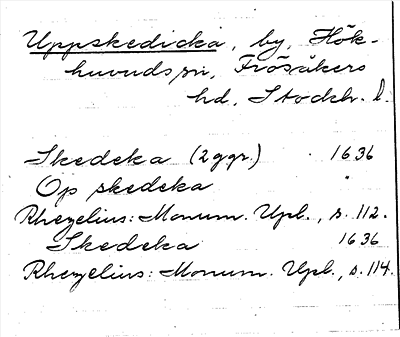 Uppskedicka, by, Hök-
huvuds sn, Frösåkers
hd, Stockh. l.
Skedeka (2 ggr.) 1636
Op skedeka "
Rhezelius: Monum. Upl., s. 112.
Skedeka 1636
Rhezelius: Monum. Upl., s. 114.